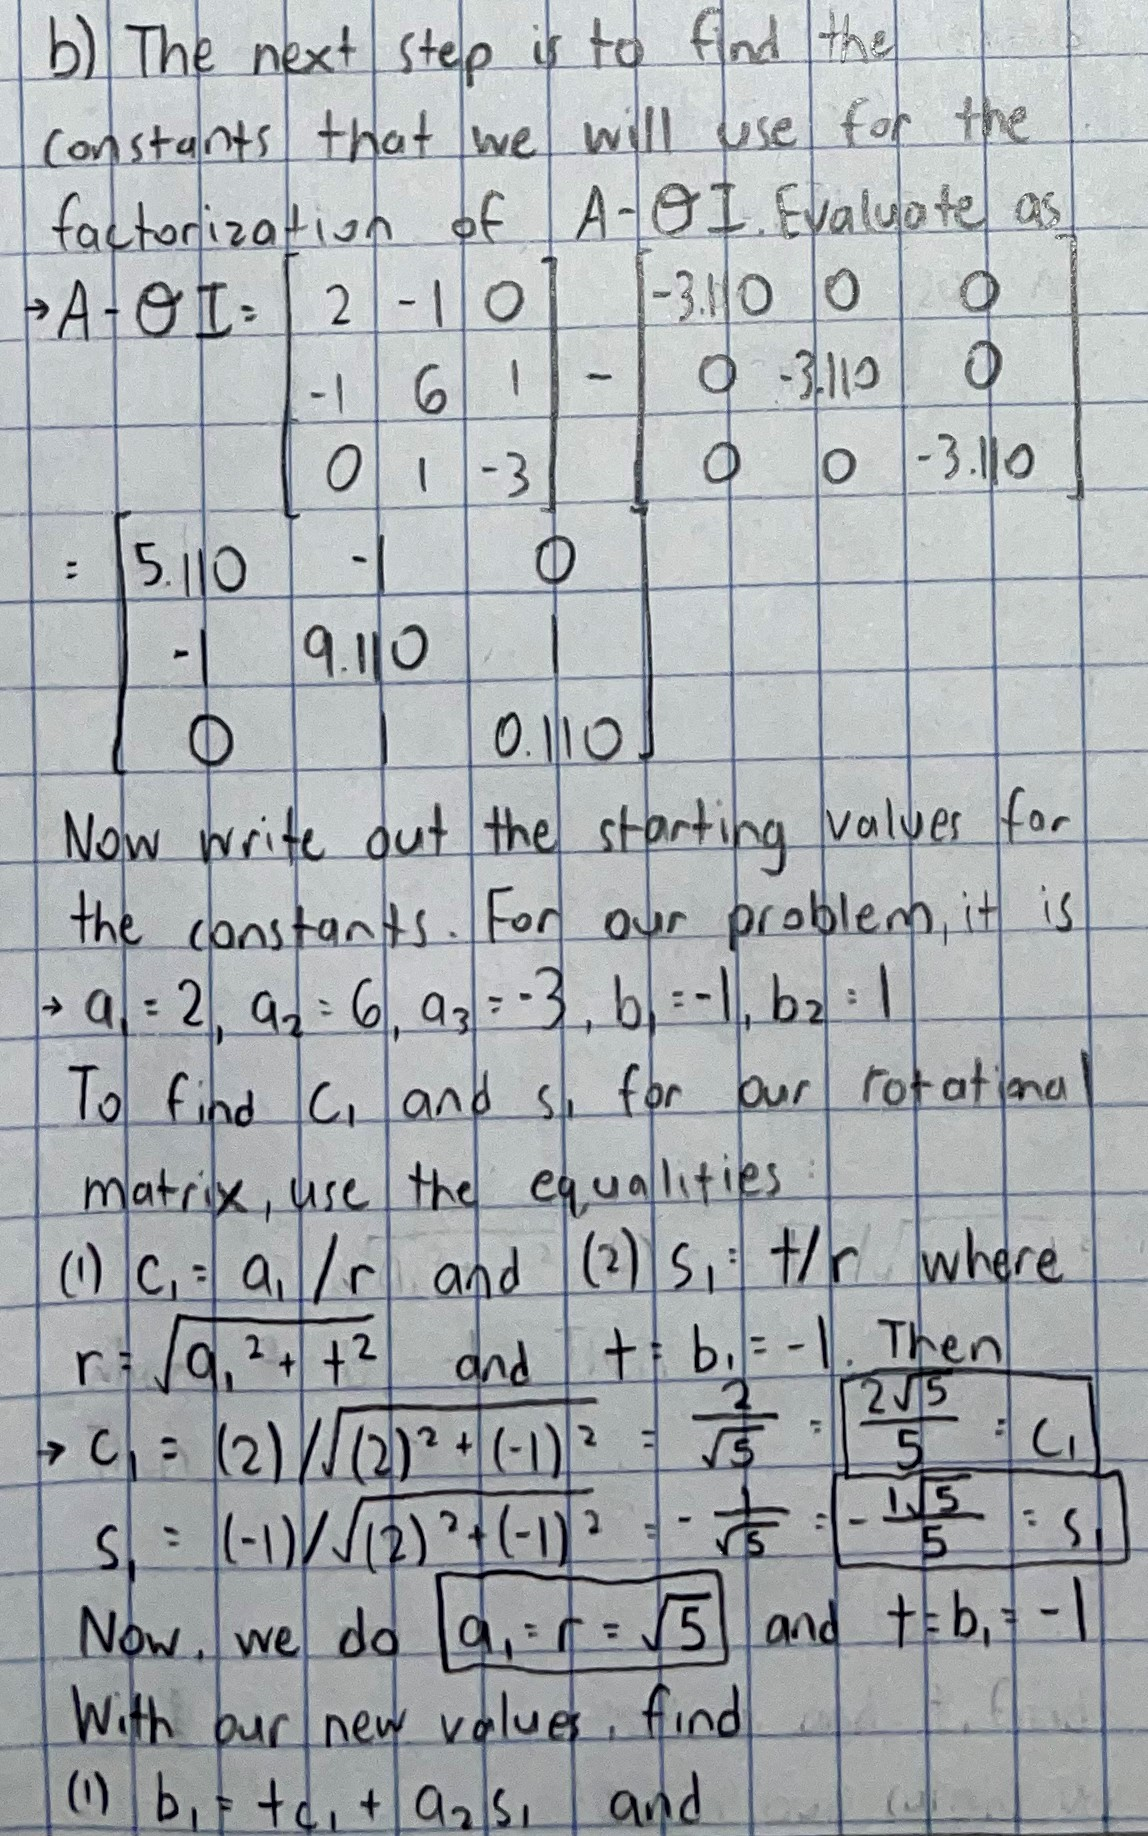 b) The next step is to find the
constants that we will use for the
factorization of A-θI. Evaluate as
→ A-θI = [2 -1 0] - [-3.110 0 0]
[-1 6 1] [0 -3.110 0]
[0 1 -3] [0 0 -3.110]
= [5.110 -1 0]
[-1 9.110 1]
[0 1 0.110]
Now write out the starting values for
the constants. For our problem, it is
→ a₁ = 2, a₂ = 6, a₃ = -3, b₁ = -1, b₂ = 1
To find c₁ and s₁ for our rotational
matrix, use the equalities:
(1) c₁ = a₁/r and (2) s₁ = t/r where
r = √(a₁² + t²) and t = b₁ = -1. Then
→ c₁ = (2)/√((2)² + (-1)²) = 2/√5 = 2√5/5 = c₁
s₁ = (-1)/√((2)² + (-1)²) = -1/√5 = -1√5/5 = s₁
Now, we do a₁ = r = √5 and t = b₁ = -1
With our new values, find
(1) b₁ = tc₁ + a₂s₁ and